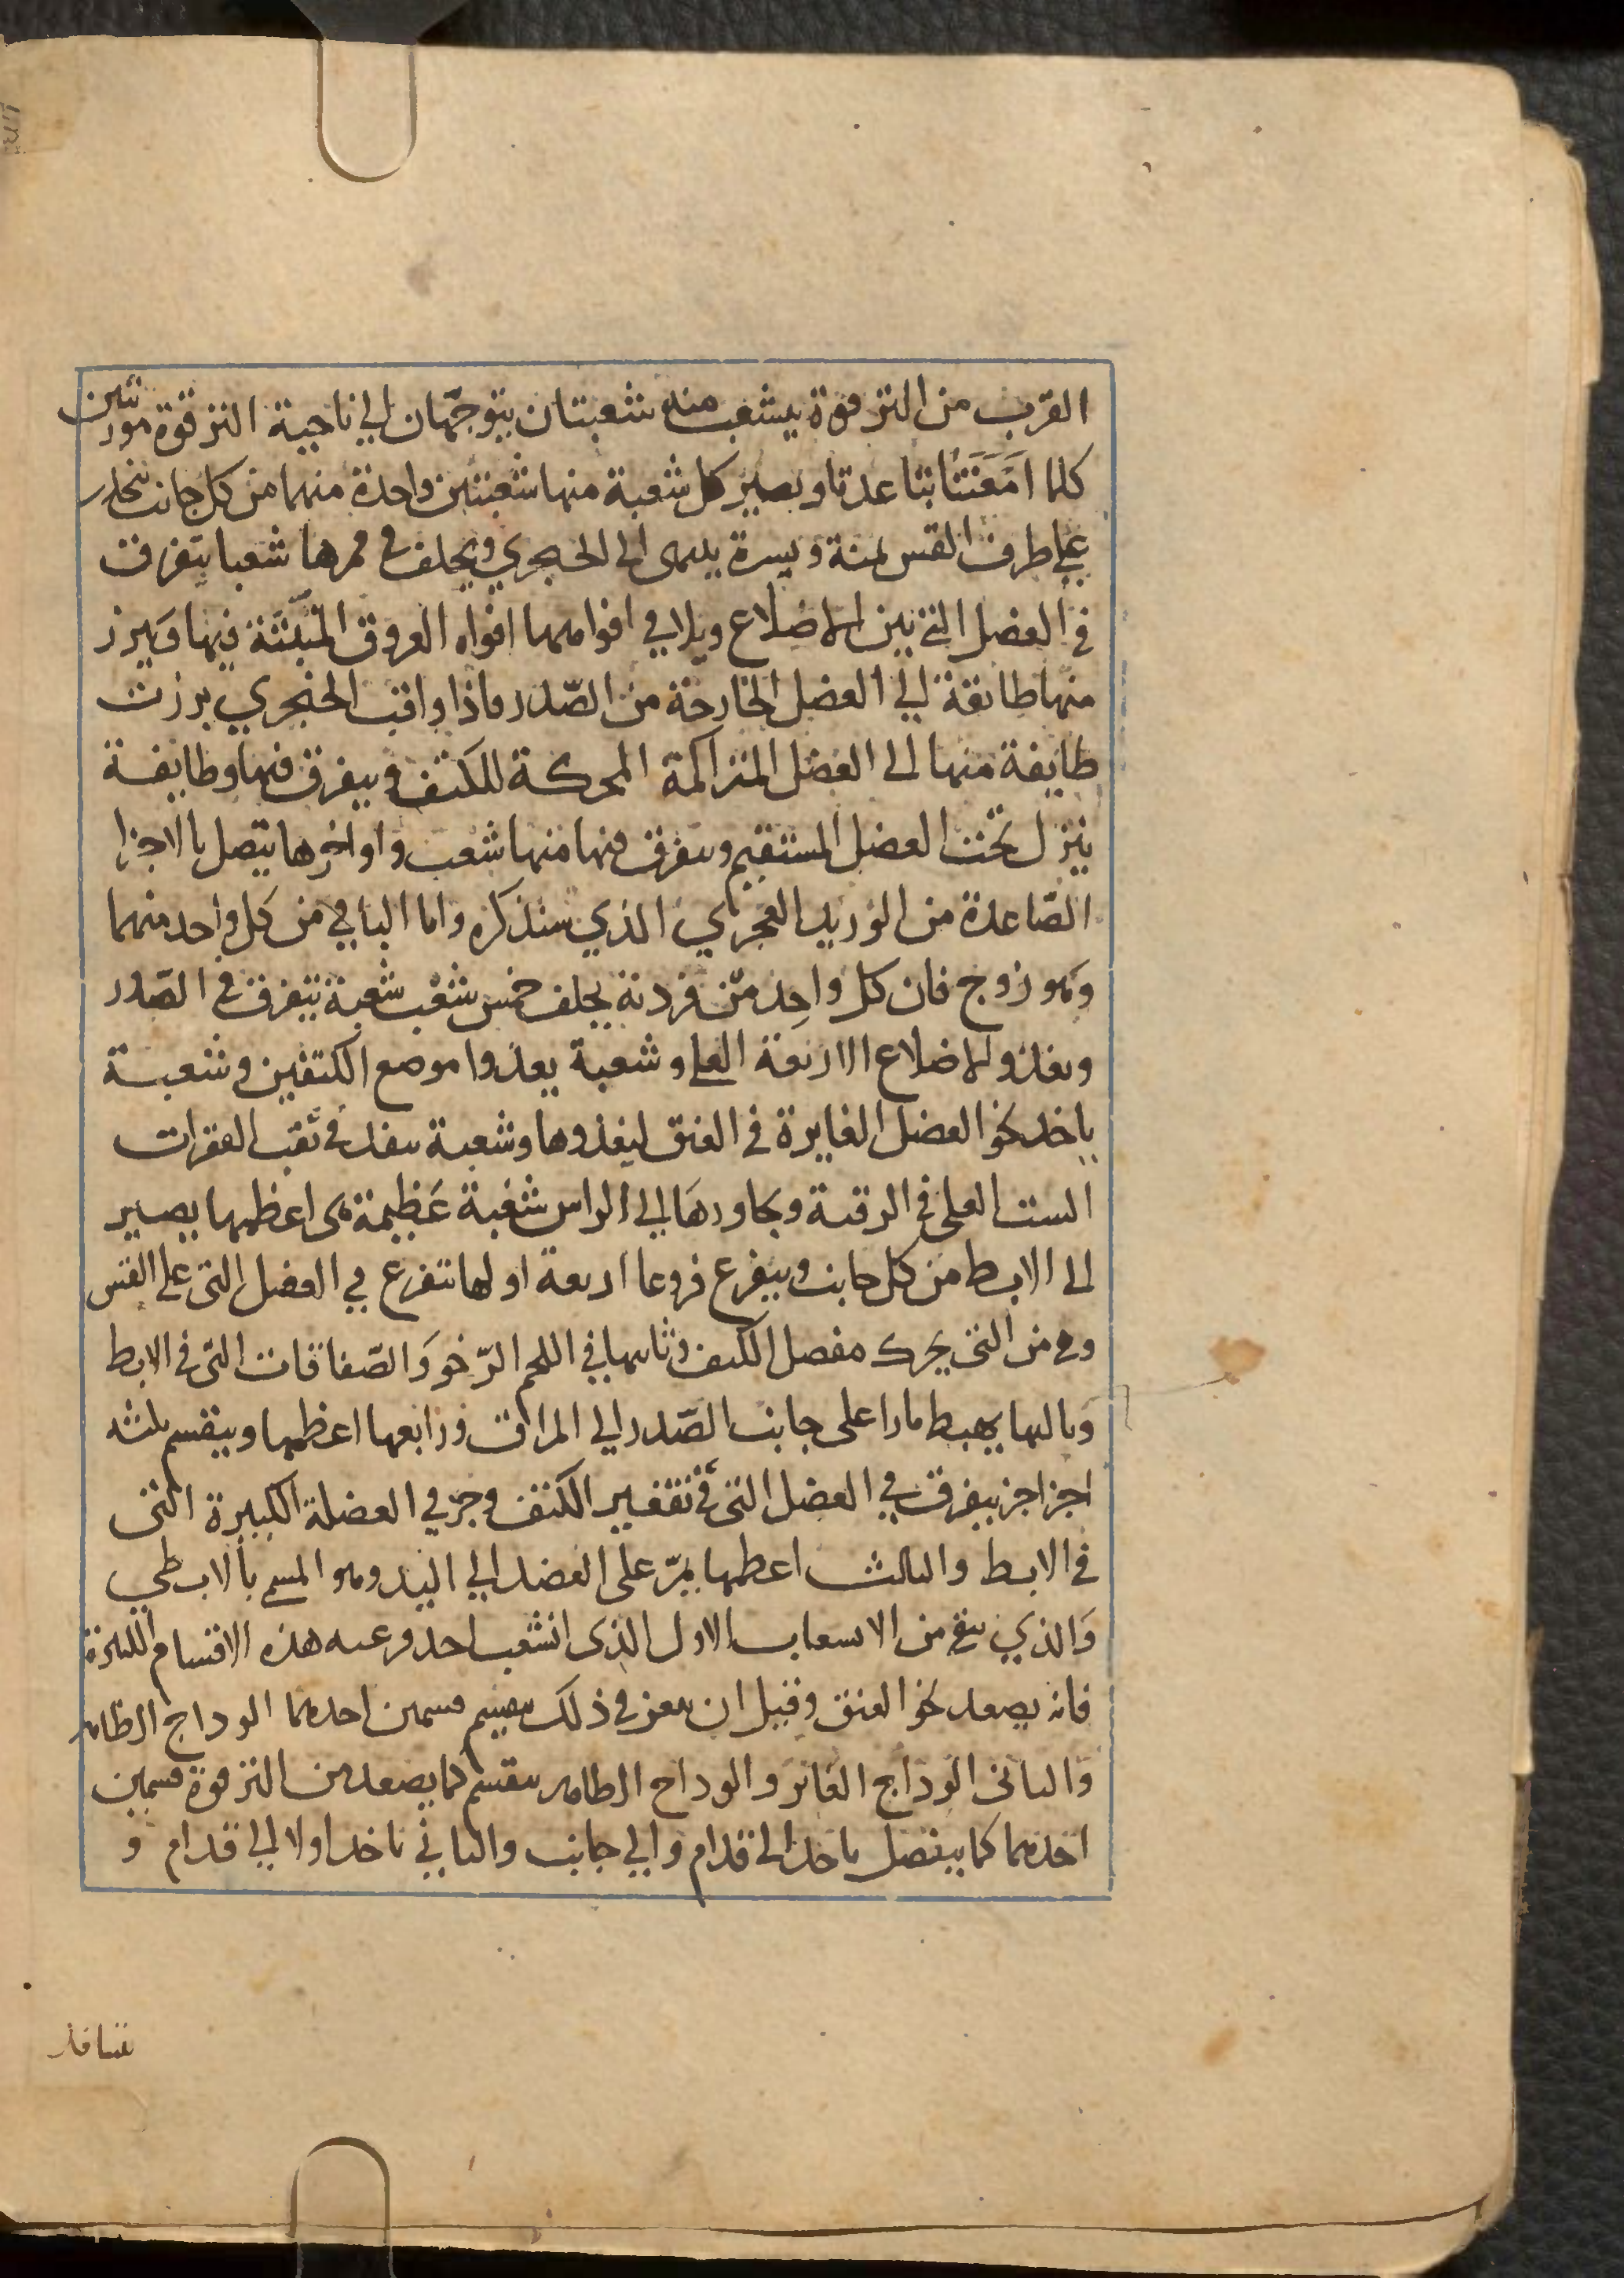 القرب من الترقوة يتشعب منه شعبتان يتوجهان الي ناحية الترقوة موربتين
كلما امعنتا تباعدتا ويصير كل شعبة منها شعبتين واحدة منهما من كل جانب ينحدر
على طرف القس يمنة ويسرة ينتهى الى الحنجري ويخلف في ممرها شعبا يتفرق
في العضل التي بين الاضلاع ويلاقي افواهها افواه العروق المنبثة فيها ويبرز
منها طايفة الي العضل الخارجة من الصدر فاذا وافت الحنجري برزت
طايفة منها الى العضل المتراكمة المحركة للكتف ويتفرق فيها وطايفة
ينزل تحت العضل المستقيم ويتفرق فيها منها شعب واواخرها يتصل بالاجزا
الصاعدة من الوريد العجزي الذي سنذكره واما الباقي من كل واحد منهما
وهو زوج فان كل واحد من فردية يخلف خمس شعب شعبة يتفرق في الصدر
ويغذو الاضلاع الاربعة العلى وشعبة يغذوا موضع الكتفين وشعبة
ياخذ نحو العضل الغايرة في العنق ليغذوها وشعبة ينفذ في ثقب الفقرات
الست العلى في الرقبة ويجاورها الي الراس شعبة عظيمة هى اعظمها يصير
الى الابط من كل جانب ويتفرع فروعا اربعة اولها تتفرع في العضل التي على القس
وهي من التي يحرك مفصل الكتف وثانيها في اللحم الرخو والصفاقات التي في الابط
وثالثها يهبط مارا على جانب الصدر الي المراق ورابعها اعظمها وينقسم ثلثه
اجزا جز يتفرق في العضل التي في تقعير الكتف وجز في العضلة الكبيرة التي
في الابط والثالث اعظمها يمر على العضد الي اليد وهو المسمى بالابطي
والذي يبقى من الانشعاب الاول الذى انشعب احد فرعيه هذه الاقسام الكثيرة
فانه يصعد نحو العنق وقبل ان يمعن في ذلك ينقسم قسمين احدهما الوداج الظاهر
والثاني الوداج الغاير والوداج الظاهر ينقسم كما يصعد من الترقوة قسمين
احدهما كما ينفصل ياخذ الى قدام والي جانب والثاني ياخذ اولا الي قدام و